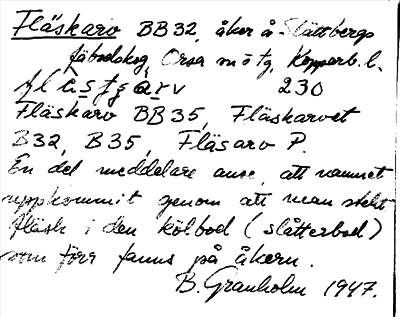 Fläskarv BB32, åker å Slättbergs
fäbodskog, Orsa sn o tg, Kopparb. l.
230
Fläskarv BB35, Fläskarvet
B32, B35, Fläsarv P.
En del meddelare anse, att namnet
uppkommit genom att man stekt
fläsk i den kölbod (slåtterbod)
som förr fanns på åkern.
B. Granholm 1947.